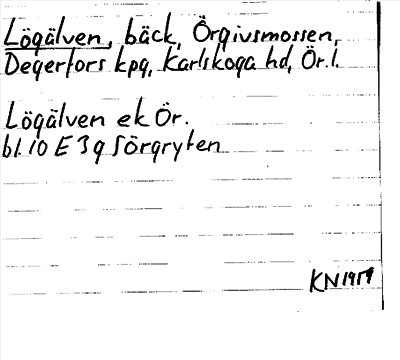 Lögälven, bäck, Örgivsmossen,
Degerfors kpg, Karlskoga hd, Ör. l.
Lögälven ek Ör.
bl. 10 E 3 g Sörgryten
KN 1959